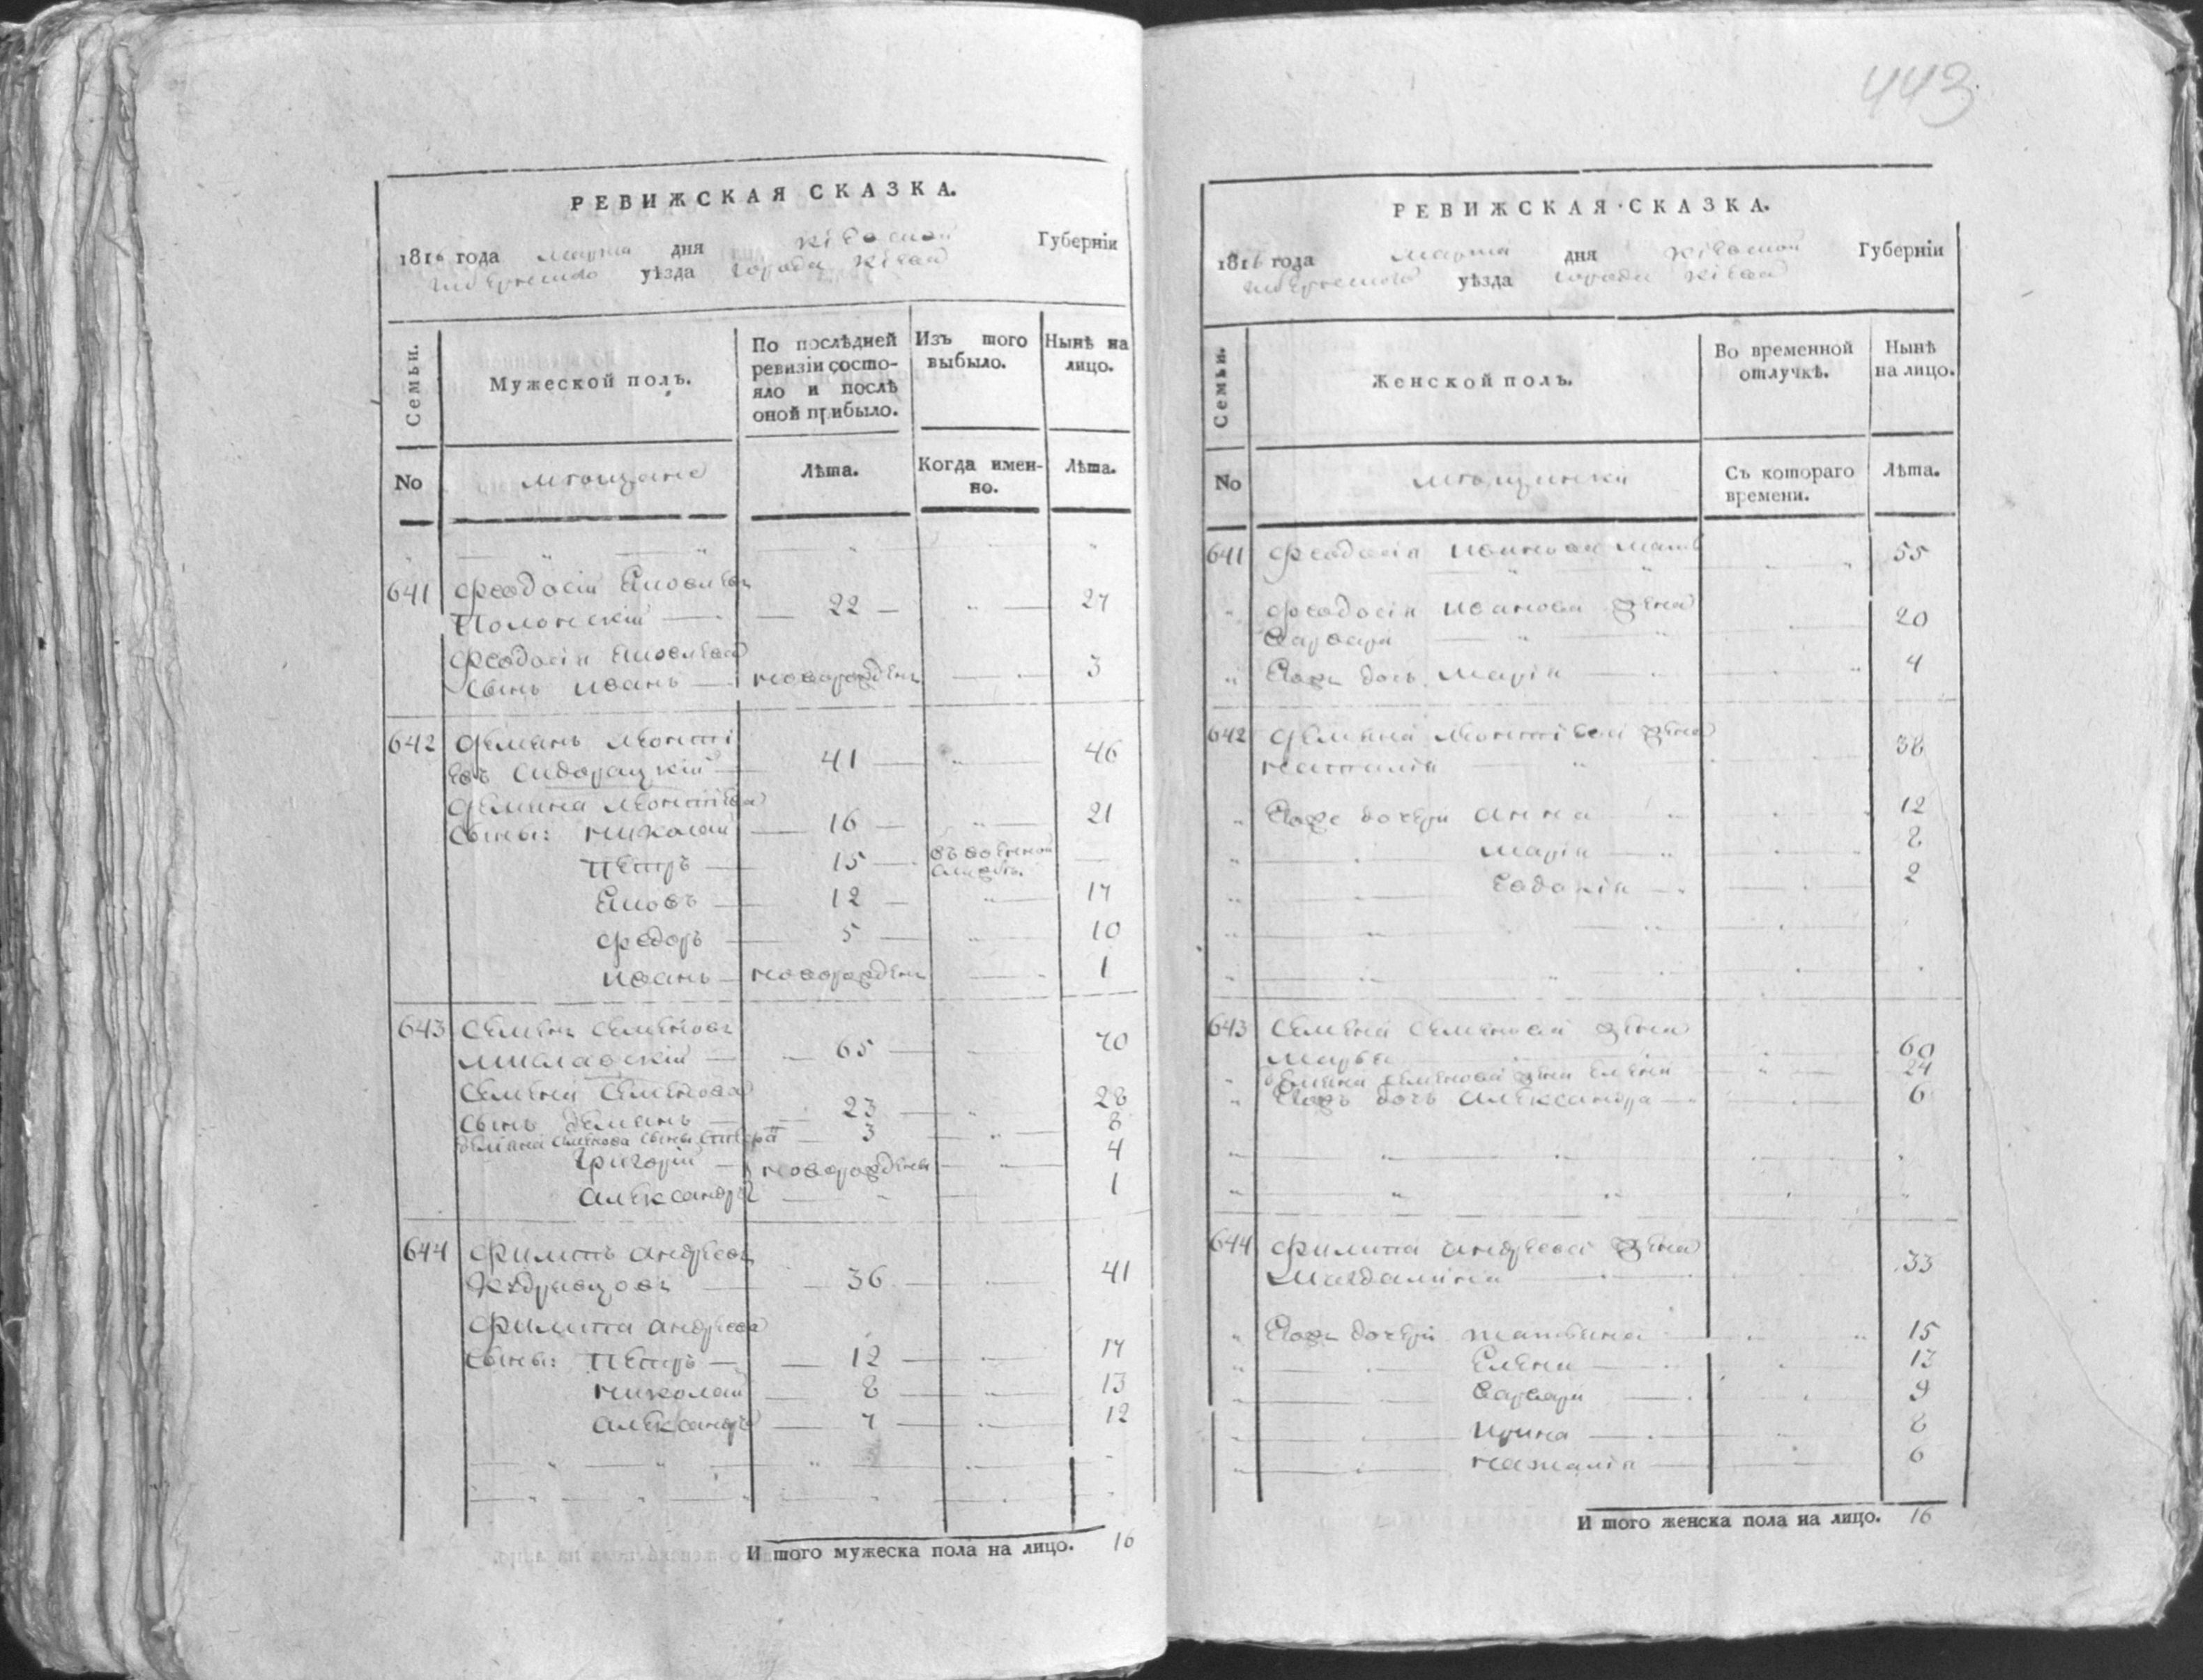 443
РЕВИЖСКАЯ СКАЗКА.
1816 года марта дня Кіевской Губерніи
уѣзда города Кіева
Семьи.
Мужеской полъ.
По послѣдней ревизіи состо-
яло и послѣ
оной прибыло.
Изъ того выбыло.
Нынѣ на лицо.
No
мещане
Лѣта.
Когда имен-
но.
Лѣта.
641 Феодосій Яковлевъ
Полонскій — 22 — 27
Феодосія Яковлева
сынъ Иванъ — новорожденъ 3
642 Демянъ Леонті
евъ Сидорацкій 41 46
Демяна Леонтіева
сыны: Николай 16 21
Петръ 15 въ военной службѣ
Яковъ 12 17
Федоръ 5 10
Иванъ новорожденъ 1
643 Семенъ Семеновъ
Миславскій 65 70
Семена Семенова
сынъ Демянъ 23 28
Демяна Семенова сыны 3 8
Григорій новорожденны 4
Александръ 1
644 Филипъ Андреевъ
36 41
Филипа Андреева
сыны: Петръ 12 17
Николай 8 13
Александръ 7 12
И того мужеска пола на лицо. 16
РЕВИЖСКАЯ СКАЗКА.
1816 года марта дня Кіевской Губерніи
уѣзда города Кіева
Семьи.
Женской полъ.
Во временной
отлучкѣ.
Нынѣ
на лицо.
No
мещанки
Съ котораго
времени.
Лѣта.
641 Феодосія мать 55
Феодосія жена
Варвара 20
Его дочь Марія 4
642 Демяна Леонтіева жена
Наталія 38
Его дочери Анна 12
Марія 8
Евдокія 2
643 Семена Семенова жена
Марья 60
Демяна Семенова жена Елена 24
Его дочь Александра 6
644 Филипа Андреева жена
Магдалина 33
Его дочери Татьяна 15
Елена 13
Варвара 9
Ирина 8
Наталія 6
И того женска пола на лицо. 16